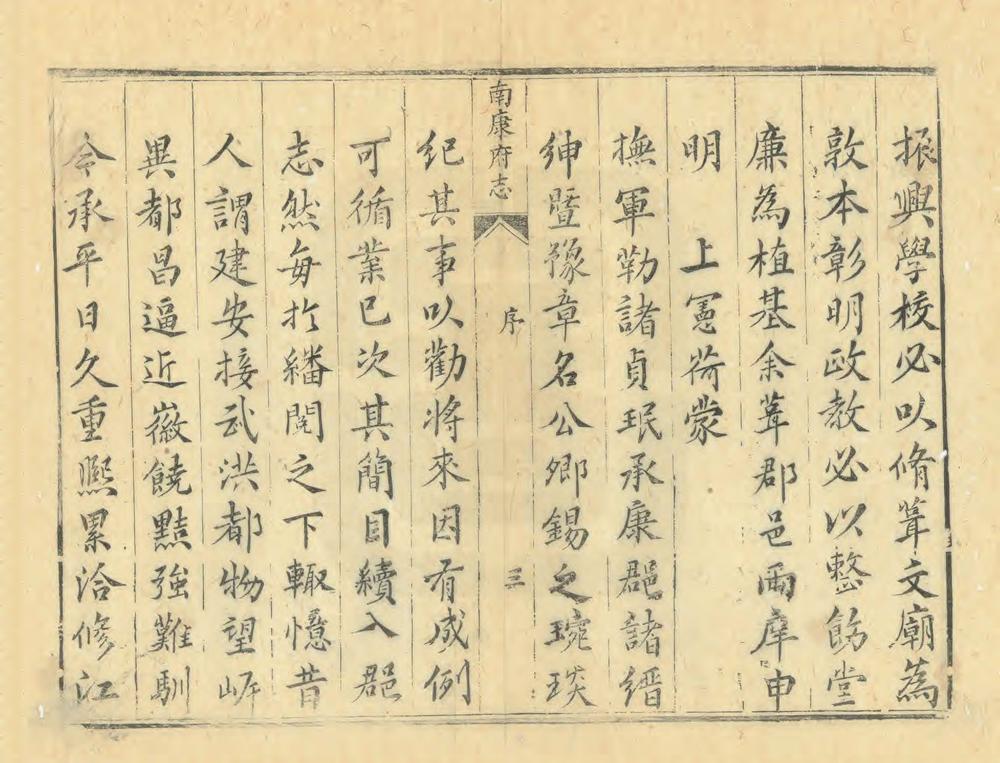 振興學校必以脩葺文廟為
敦本彰明政教必以整飭堂
廉為植基余葺郡邑兩庠申
明　上憲荷蒙
撫軍勒諸貞珉承康郡諸縉
紳暨豫章名公卿錫之琬琰
紀其事以勸將來因有成例
南康府志
序
三
可循業已次其簡目續入郡
志然每於繙閱之下輒憶昔
人謂建安接武洪都物望嶄
異都昌逼近徽饒黠強難馴
今承平日久重熙累洽修江